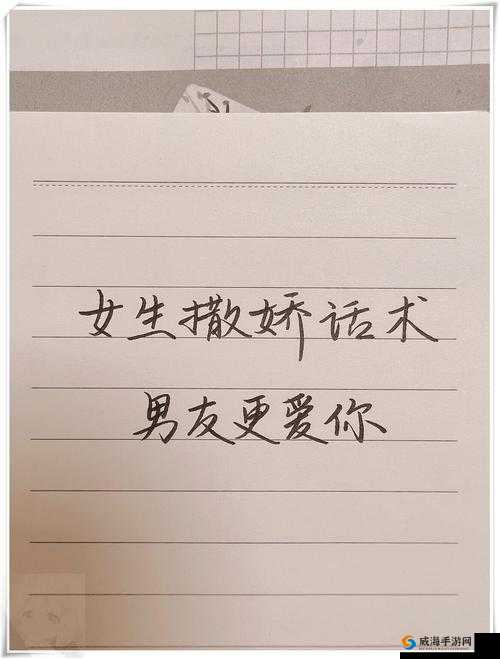 女生撒娇话术
男友更爱你
威海手游网